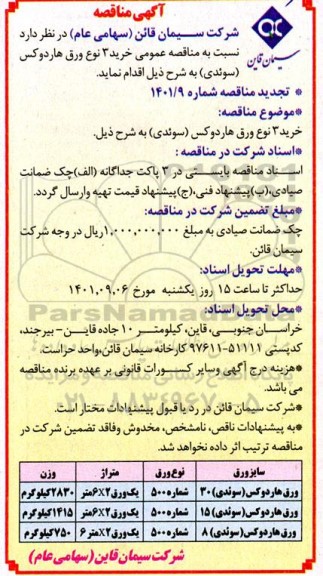 آگهی مناقصه
شرکت سیمان قائن (سهامی عام) در نظر دارد
نسبت به مناقصه عمومی خرید۳ نوع ورق هاردوکس
(سوئدی) به شرح ذیل اقدام نماید.
سیمان قاین
* تجدید مناقصه شماره ۱۴۰۱/۹
*موضوع مناقصه:
خرید۳ نوع ورق هاردوکس (سوئدی) به شرح ذیل.
*اسناد شرکت در مناقصه :
اسناد مناقصه بایستی در ۳ پاکت جداگانه (الف)چک ضمانت
صیادی،(ب)پیشنهاد فنی،(ج)پیشنهاد قیمت تهیه وارسال گردد.
*مبلغ تضمین شرکت در مناقصه:
چک ضمانت صیادی به مبلغ ۱,۰۰۰,۰۰۰,۰۰۰ریال در وجه شرکت
سیمان قائن.
*مهلت تحویل اسناد:
حداکثر تا ساعت ۱۵ روز یکشنبه مورخ ۱۴۰۱,۰۹,۰۶
*محل تحویل اسناد:
خراسان جنوبی، قاین، کیلومتر ۱۰ جاده قاین - بیرجند،
کدپستی ۵۱۱۱۱-۹۷۶۱۱ کارخانه سیمان قائن،واحد حراست.
*هزینه درج آگهی وسایر کسورات قانونی بر عهده برنده مناقصه
می باشد.
*شرکت سیمان قائن در رد یا قبول پیشنهادات مختار است.
*به پیشنهادات ناقص، نامشخص، مخدوش وفاقد تضمین شرکت در
مناقصه ترتیب اثر داده نخواهد شد.
سایز ورق نوع ورق متراژ وزن
ورق هاردوکس(سوئدی) ۳۰ شماره۵۰۰ یک ورق۲X۶متر ۲۸۳۰کیلوگرم
ورق هاردوکس(سوئدی) ۱۵ شماره۵۰۰ یک ورق۲X۶متر ۱۴۱۵کیلوگرم
ورق هاردوکس(سوئدی) ۸ شماره۵۰۰ یک ورق۲X۶متر ۷۵۰کیلوگرم
شرکت سیمان قاین (سهامی عام)